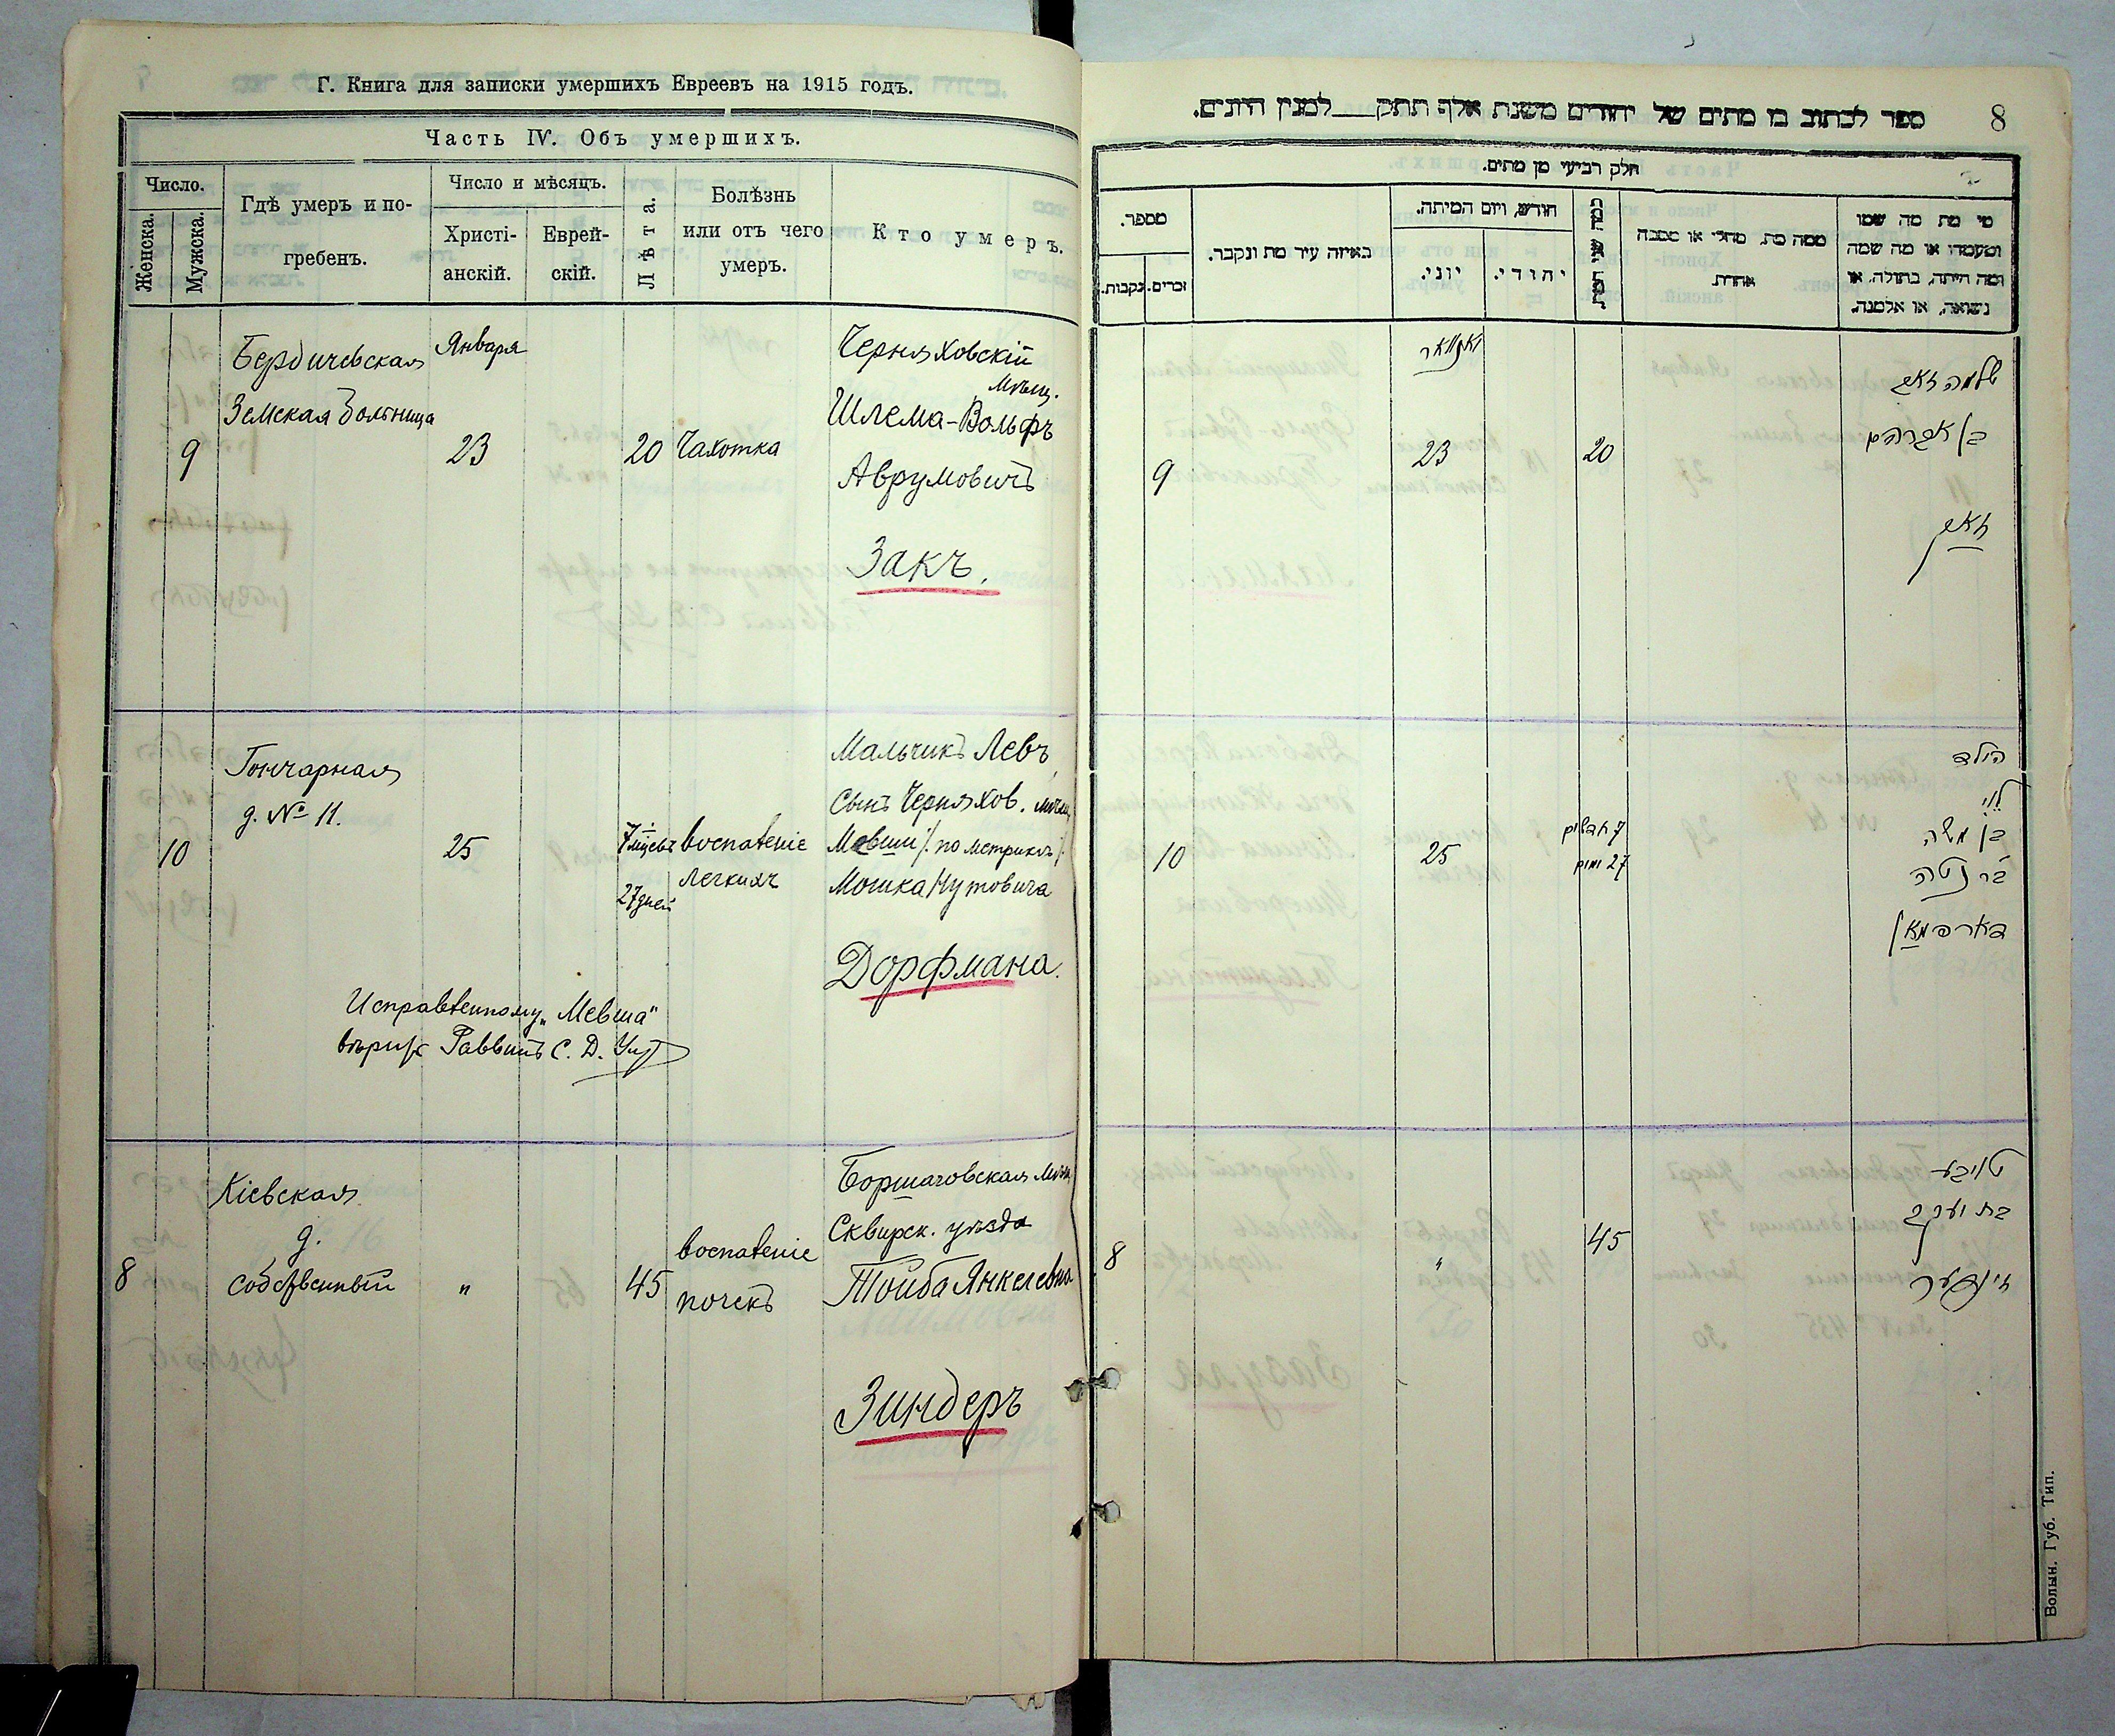 Г. Книга для записки умершихъ Евреевъ на 1915 годъ.
Часть IV. Объ умершихъ.
Число.
Женска.
Мужска.
Гдѣ умеръ и по-
гребенъ.
Число и мѣсяцъ.
Христі-
анскій.
Еврей-
скій.
Лѣта.
Болѣзнь
или отъ чего
умеръ.
Кто умеръ.
9
Бердичевская
Земская больница
Января
23
20
Чахотка
Черняховскій
мѣщ.
Шлема-Вольфъ
Аврумовичъ
Закъ.
10
Гончарная
д. № 11.
25
7 мцевъ
27 дней
воспаленіе
легкихъ
Мальчикъ Левъ,
Сынъ Черняхов. мѣщ.
Мевши /: по метрикѣ :/
Мошка Нутовича
Дорфмана.
Исправленному „Мевша"
вѣрить Раввинъ С. Д.
8
Кіевская
д.
собственный
"
45
воспаленіе
почекъ
Борщаговская мѣщ.
Сквирск. уѣзда
Тойба Янкелевна
Зиндеръ
8
ספר לכתוב בו מתים של יהודים משנת אלף תתק___למנין היונים.
חלק רביעי מן מתים.
מספר.
זכרים.
נקבות.
באיזה עיר מת ונקבר.
חודש, ויום המיתה.
יוני.
יהודי.
כמה שני המת
ממה מת, מחלי או מסבה
אחרת.
מי מת מה שמו
ומעמדו או מה שמה
ומה היתה, בתולה, או
נשואה, או אלמנה.
9
יאנואר
23
20
שלמה זאב
בן אברהם
זאק
10
25
7 חדשים
27 ימים
הילד
לוי
בן משה
בר נטה
דארפמאן
8
"
45
טויבע
בת יעקב
זינדער
Волын. Губ. Тип.